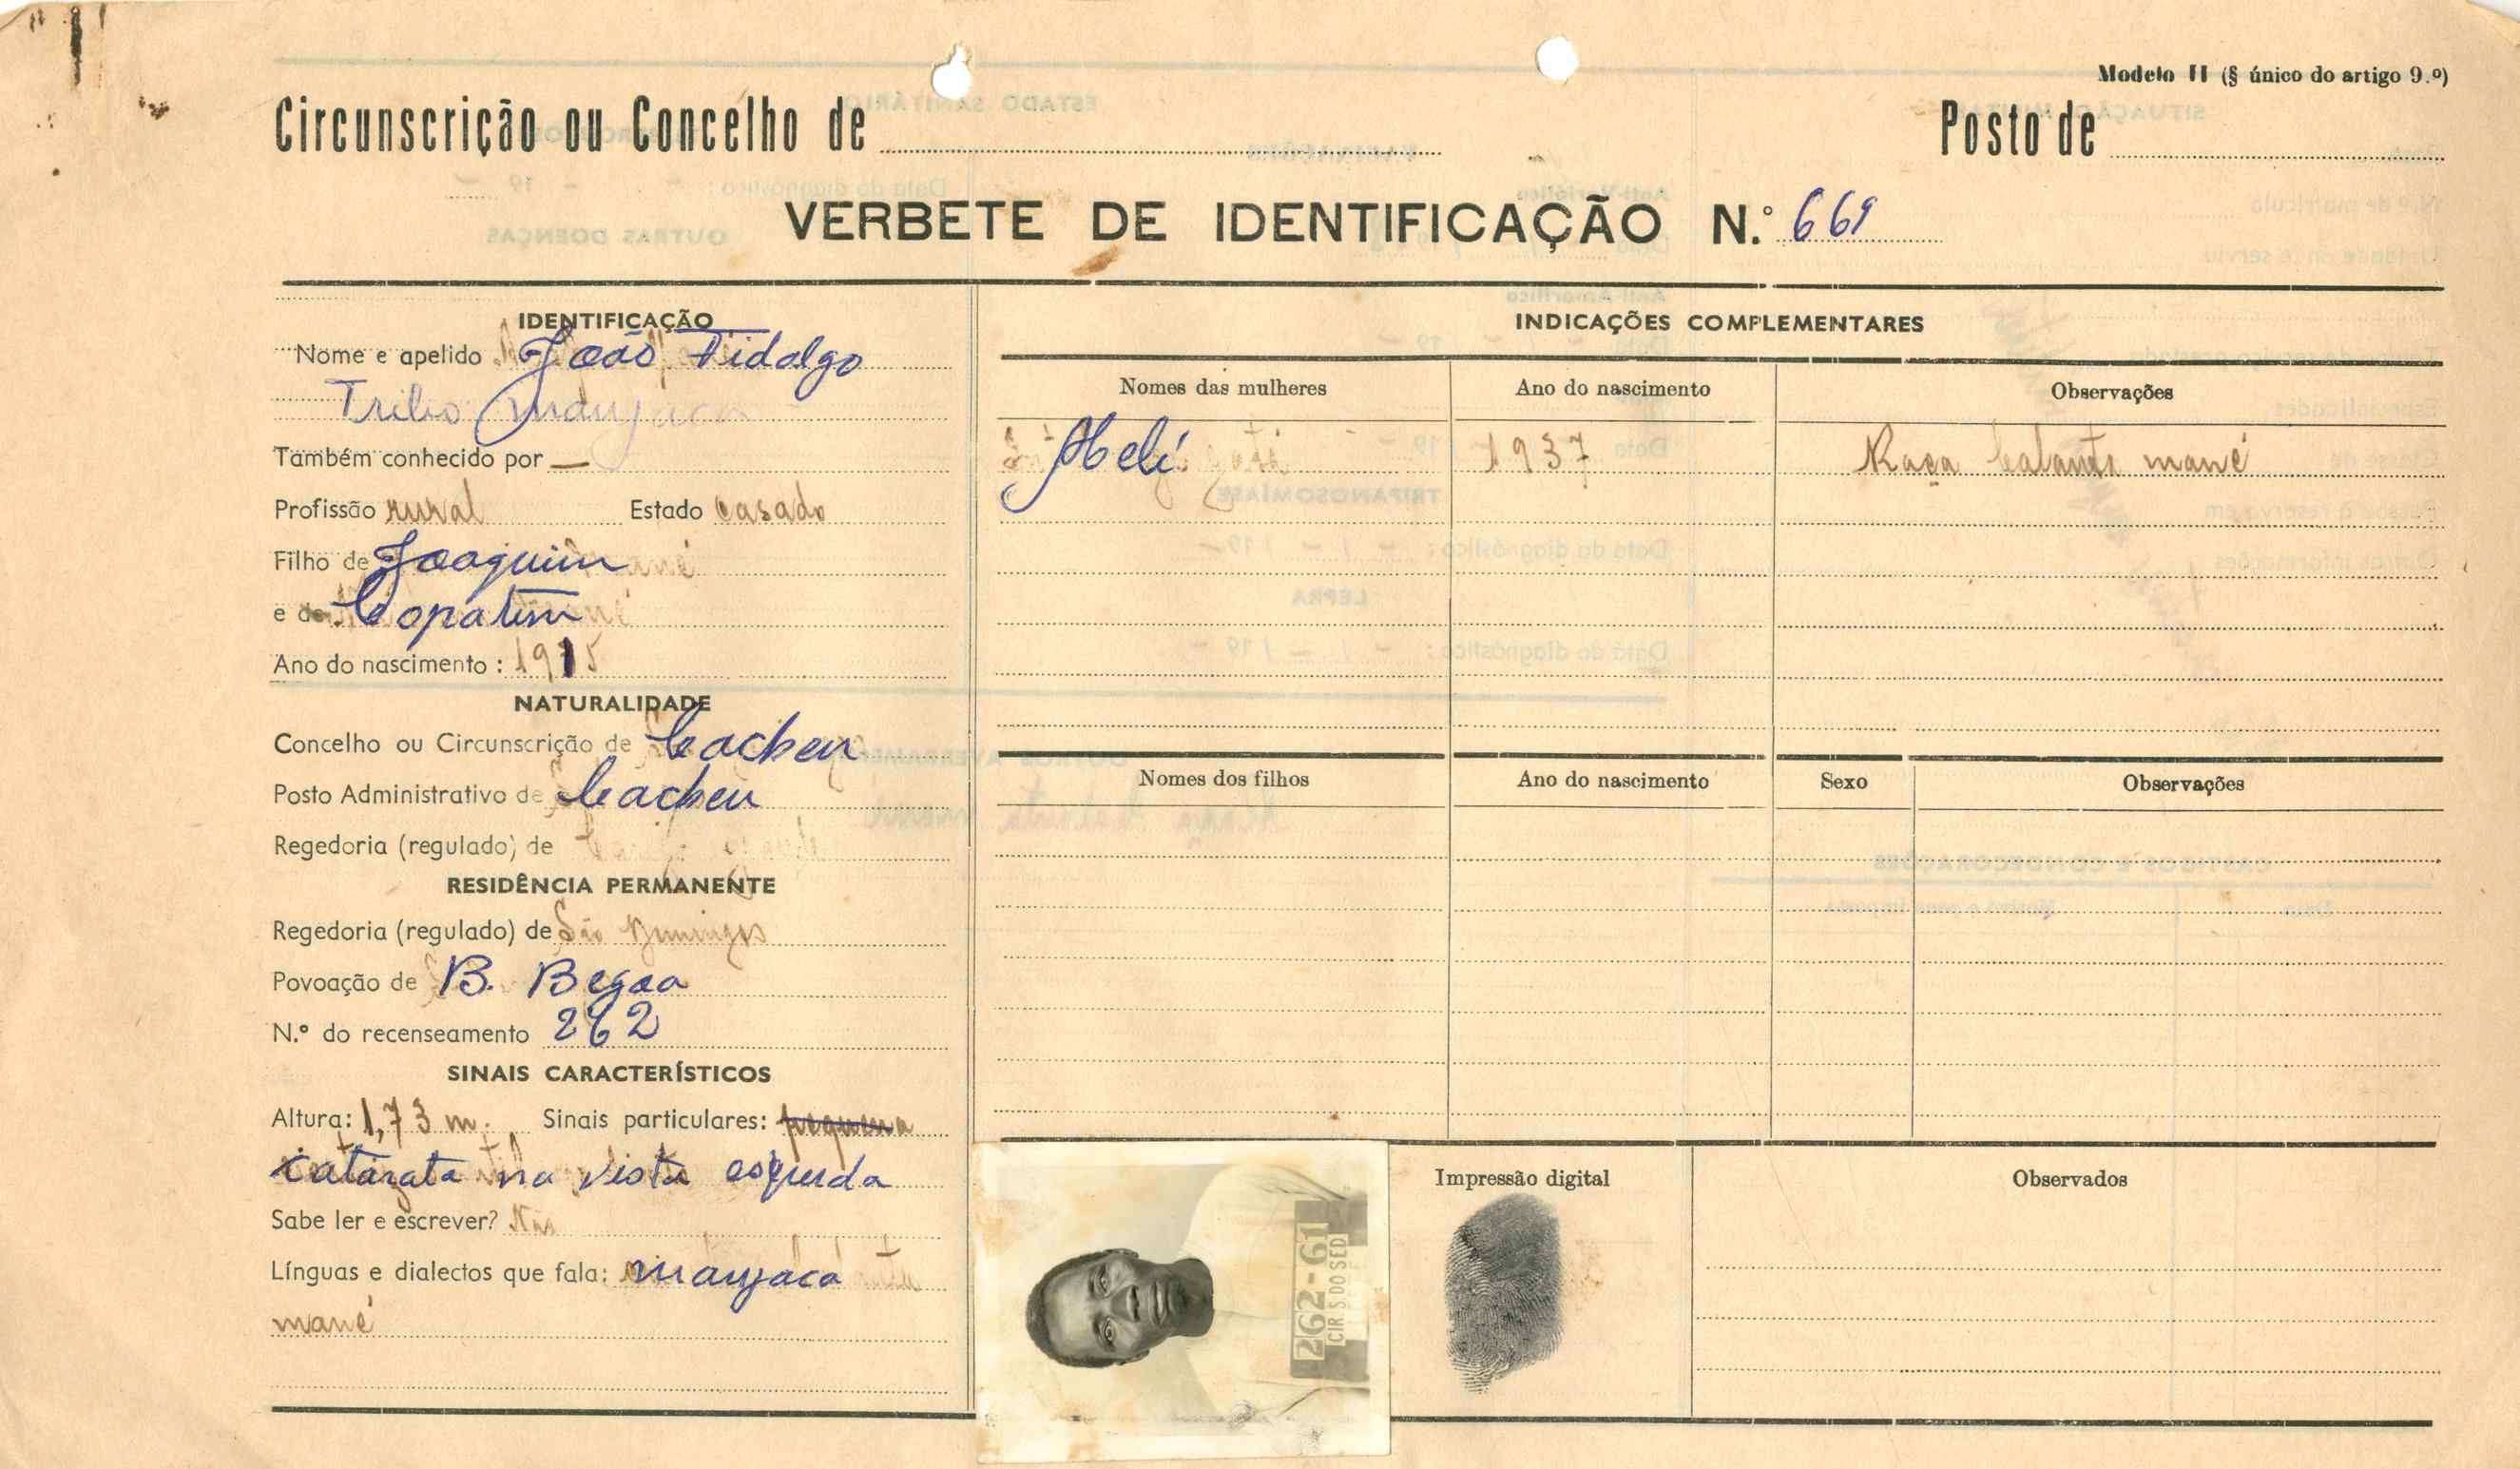 Modelo II (§ único do artigo 9.º)
Circunscrição ou Concelho de
Posto de
VERBETE DE IDENTIFICAÇÃO N.º 669
IDENTIFICAÇÃO
Nome e apelido João Fidalgo
Tribo manjaca
Também conhecido por —
Profissão rural Estado casado
Filho de Joaquim
e de Copatim
Ano do nascimento: 1915
NATURALIDADE
Concelho ou Circunscrição de Cacheu
Posto Administrativo de Cacheu
Regedoria (regulado) de
RESIDÊNCIA PERMANENTE
Regedoria (regulado) de São Domingos
Povoação de B. Begaa
N.º do recenseamento 262
SINAIS CARACTERÍSTICOS
Altura: 1,73 m. Sinais particulares: pequena
catarata na vista esquerda
Sabe ler e escrever? Não
Línguas e dialectos que fala: manjaca
mané
INDICAÇÕES COMPLEMENTARES
Nomes das mulheres Ano do nascimento Observações
1937 Raça balanta mané
Nomes dos filhos Ano do nascimento Sexo Observações
262-61
CIR.S.DO SED
Impressão digital
Observados